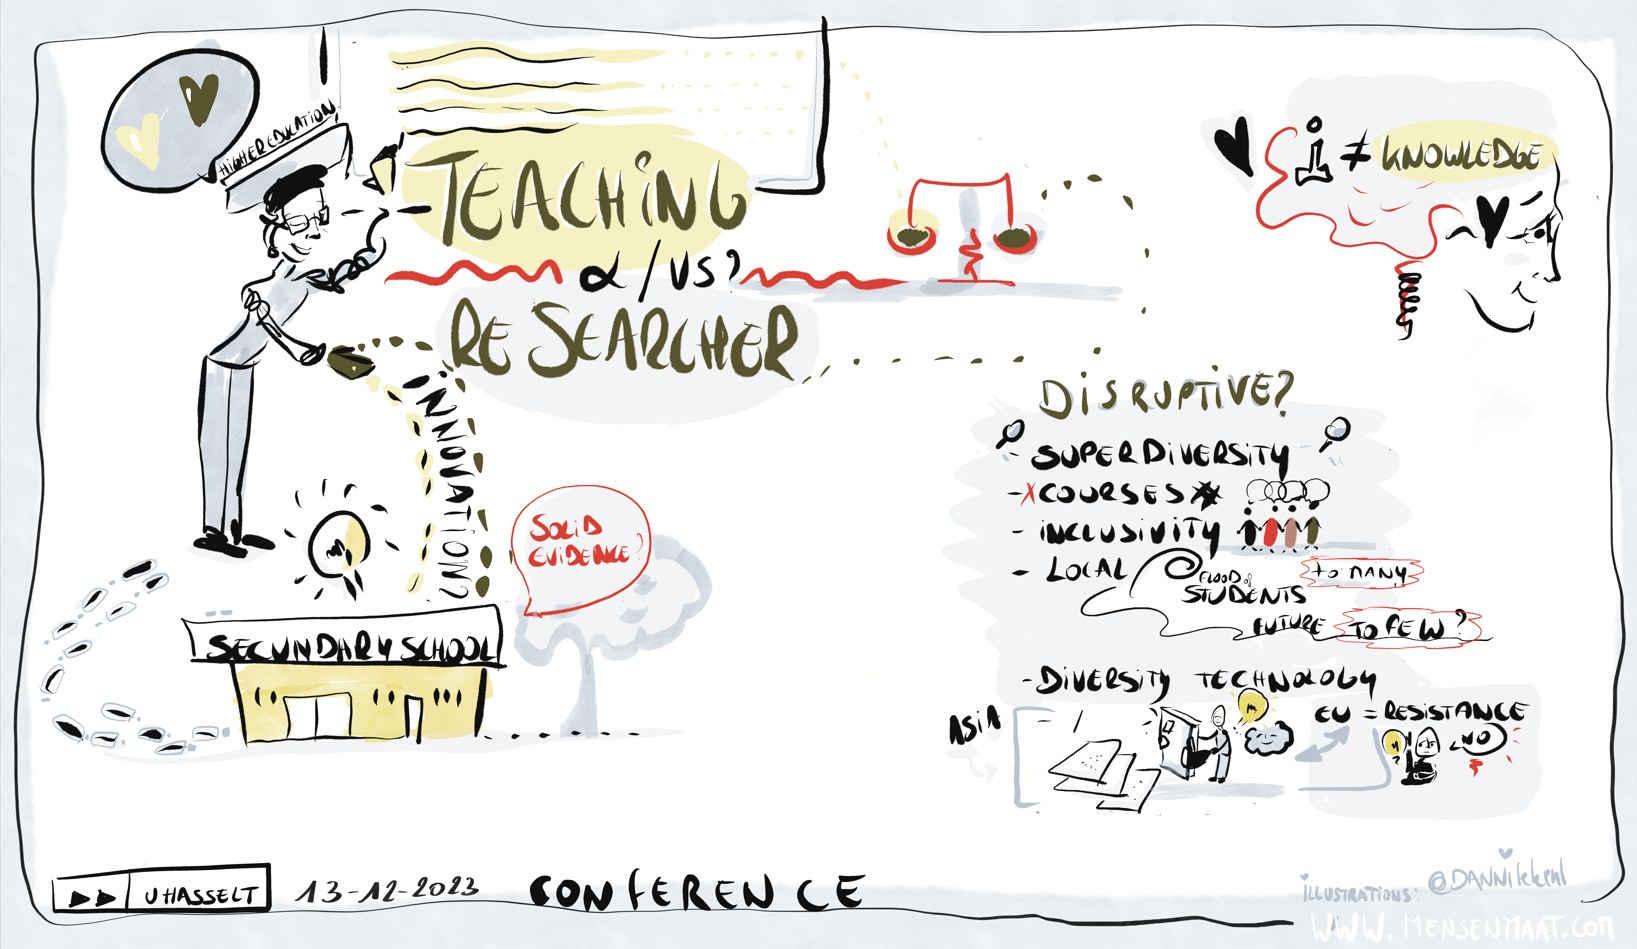 HIGHER EDUCATION
TEACHING
α/VS?
RESEARCHER
INNOVATION?
SOLID
EVIDENCE?
SECUNDARY SCHOOL
i ≠ KNOWLEDGE
DISRUPTIVE?
SUPERDIVERSITY
- X COURSES
- INCLUSIVITY
- LOCAL
FLOOD of
STUDENTS
TO MANY
FUTURE
TO FEW?
- DIVERSITY TECHNOLOGY
ASIA
EU = RESISTANCE
NO
UHASSELT
13-12-2023
CONFERENCE
ILLUSTRATIONS:
WWW.MENSENMAAT.COM